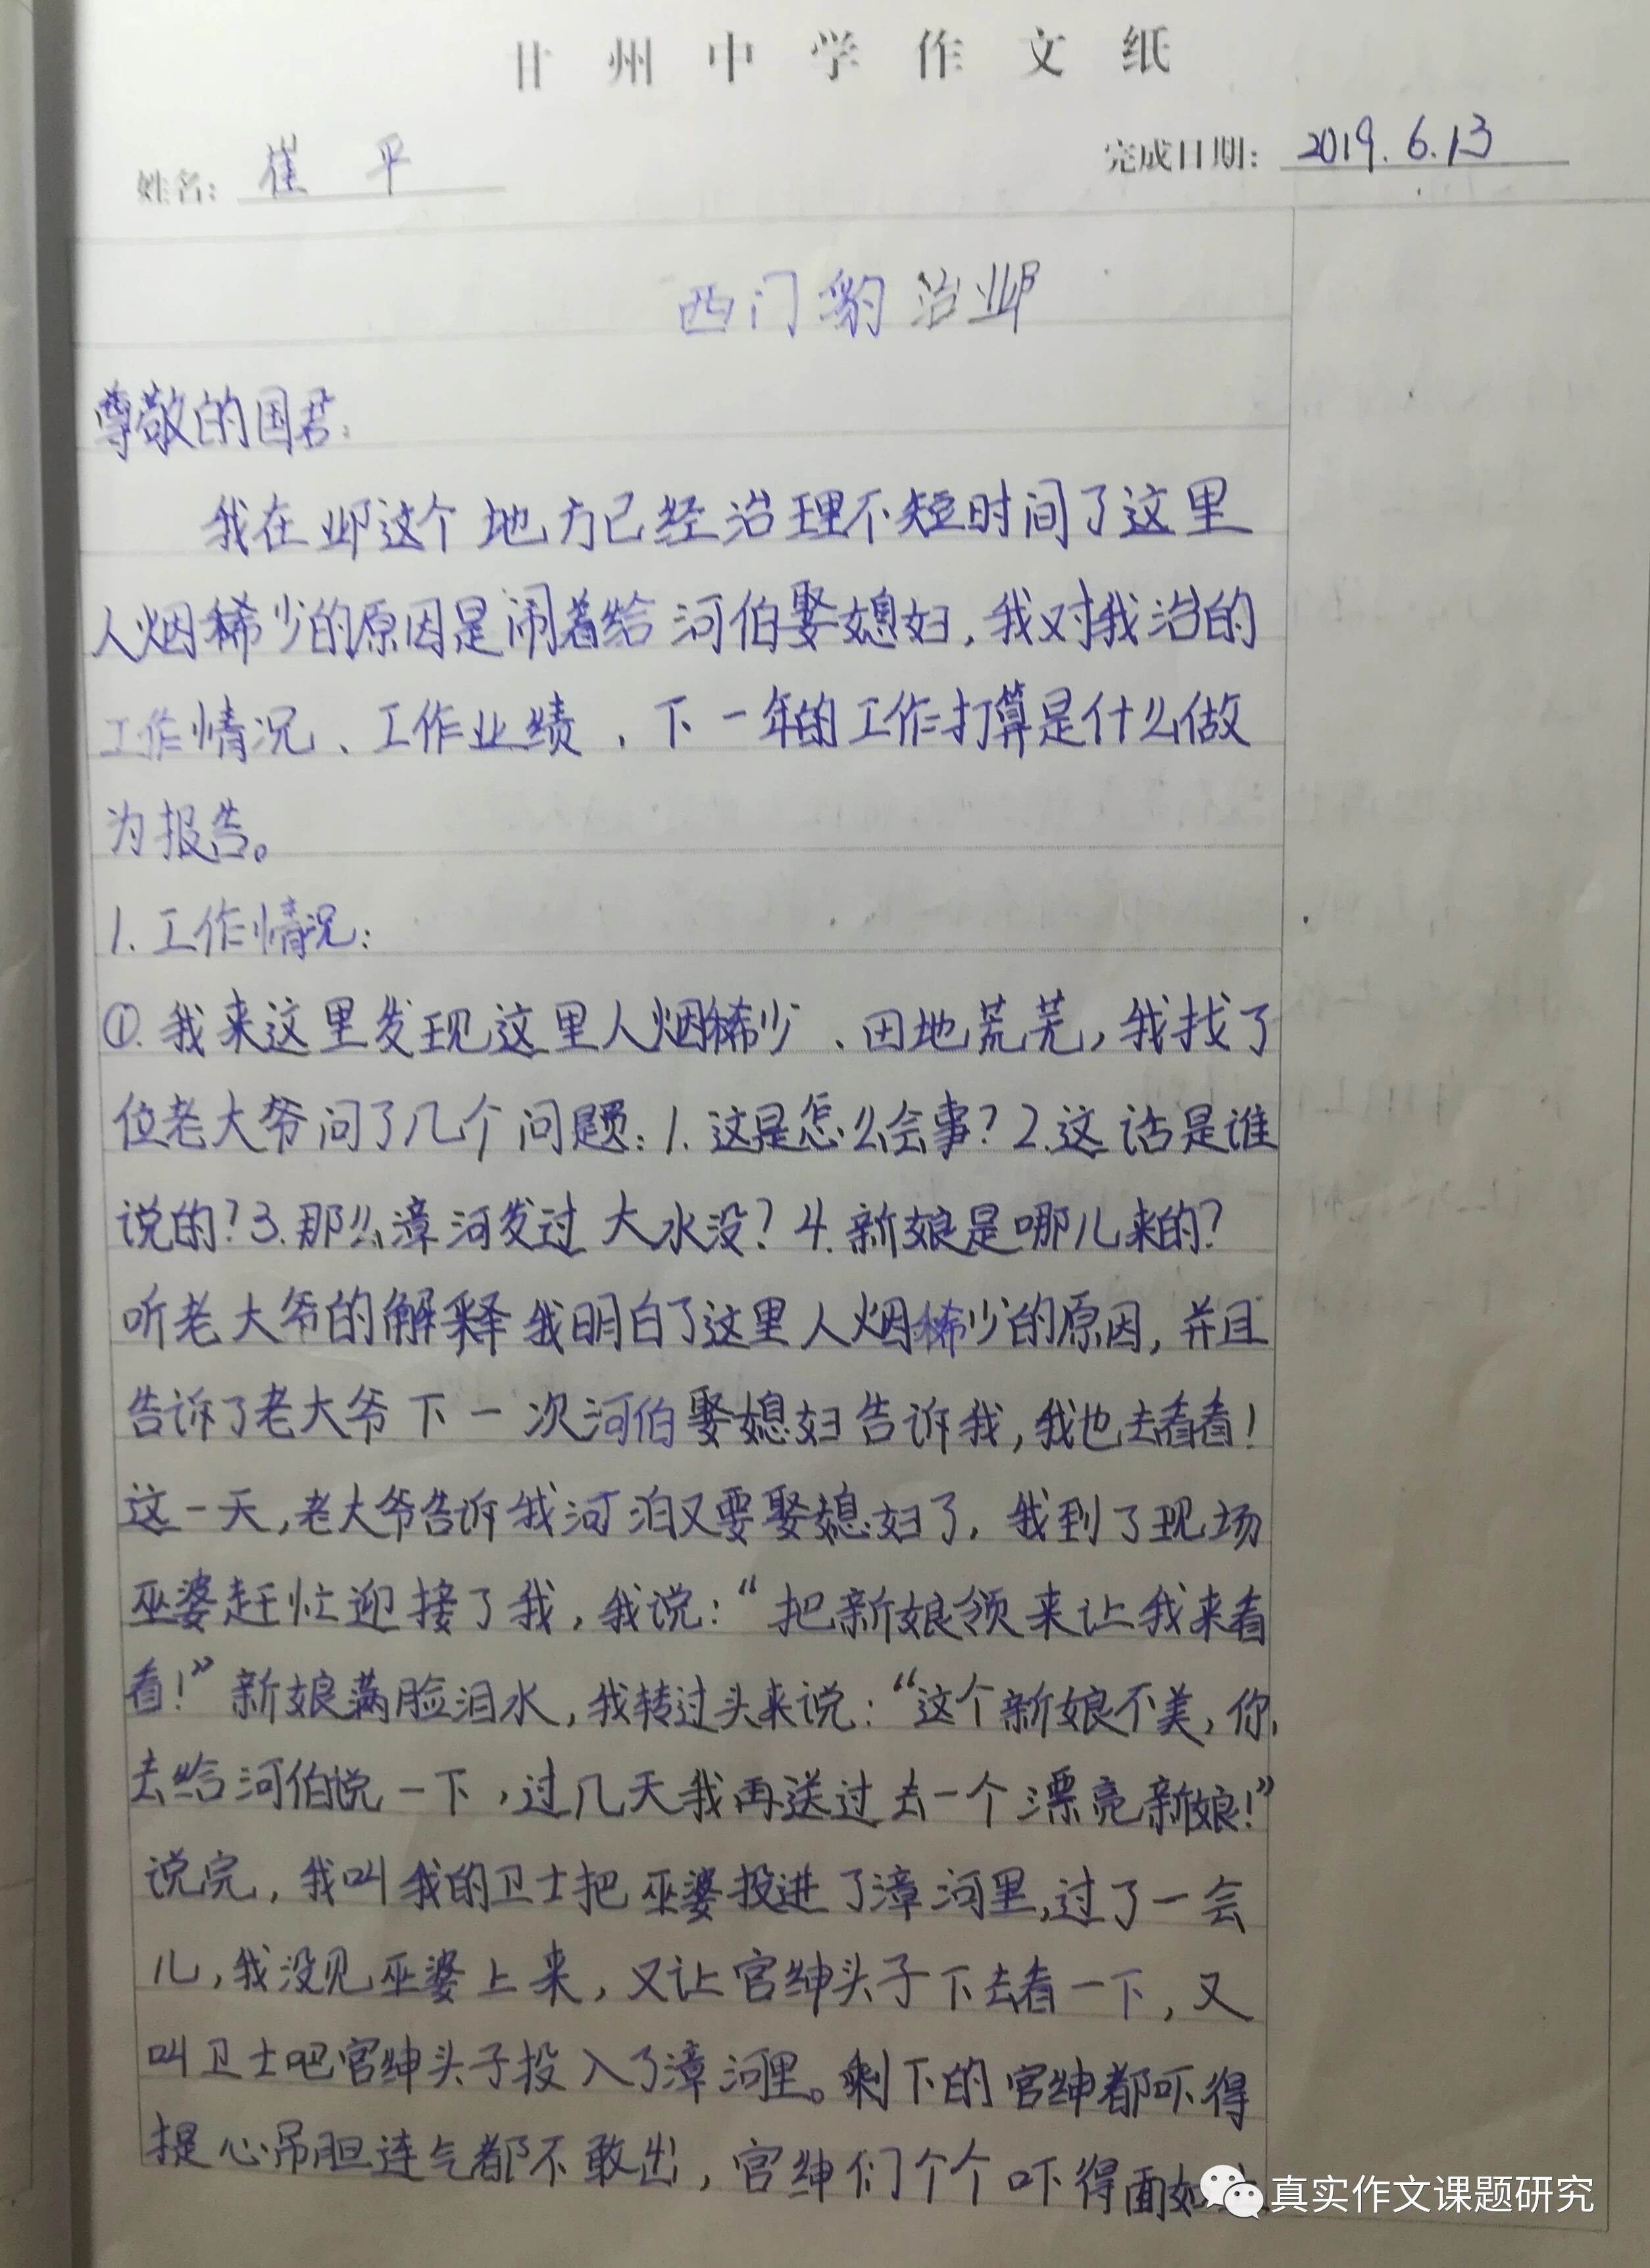 甘州中学作文纸
姓名: 崔平 完成日期: 2019.6.13
西门豹治邺
尊敬的国君:
我在邺这个地方已经治理不短时间了这里
人烟稀少的原因是闹着给河伯娶媳妇,我对我治的
工作情况、工作业绩、下一年的工作打算是什么做
为报告。
1.工作情况:
①.我来这里发现这里人烟稀少、田地荒芜,我找了
位老大爷问了几个问题:1.这是怎么会事?2.这话是谁
说的?3.那么漳河发过大水没?4.新娘是哪儿来的?
听老大爷的解释我明白了这里人烟稀少的原因,并且
告诉了老大爷下一次河伯娶媳妇告诉我,我也去看看!
这一天,老大爷告诉我河泊又要娶媳妇了,我到了现场
巫婆赶忙迎接了我,我说:“把新娘领来让我来看
看!”新娘满脸泪水,我转过头来说:“这个新娘不美,你
去给河伯说一下,过几天我再送过去一个漂亮新娘!”
说完,我叫我的卫士把巫婆投进了漳河里,过了一会
儿,我没见巫婆上来,又让官绅头子下去看一下,又
叫卫士吧官绅头子投入了漳河里。剩下的官绅都吓得
提心吊胆连气都不敢出,官绅们个个吓得面如
真实作文课题研究